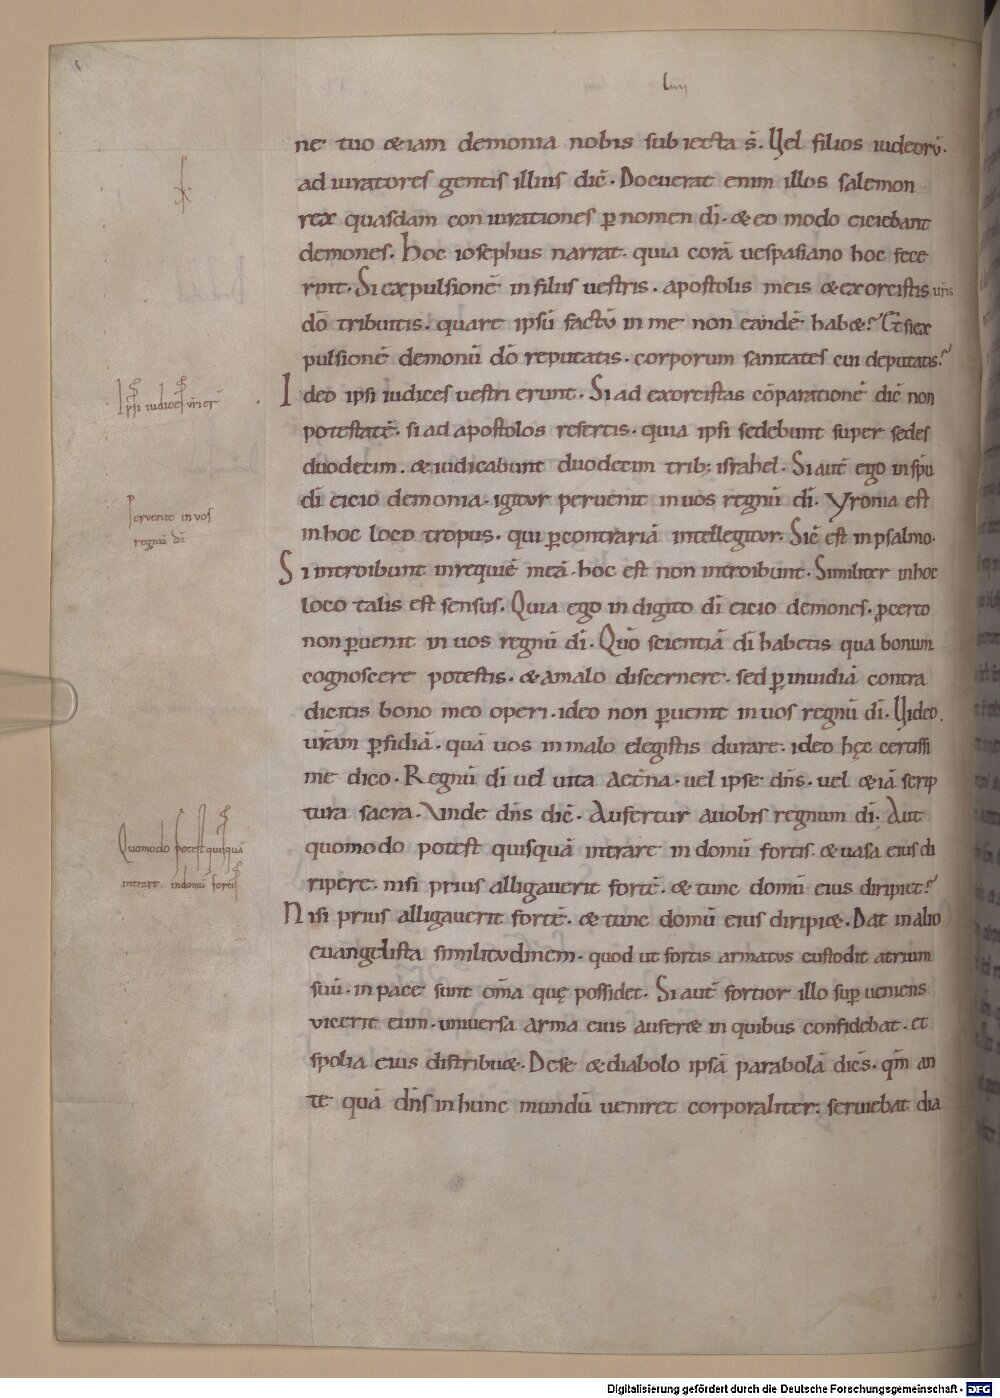 liiij
ne tuo & iam demonia nobis subiecta s̄. Vel filios iudeorū.
adiuratores gentis illius dic̄. Docuerat enim illos salemon
rex quasdam coniurationes ꝑ nomen dī. & eo modo eiciebant
demones. Hoc iosephus narrat. quia corā uespasiano hoc fece
rint. Si expulsionē in filiis uestris. apostolis meis & exorcistis ur̄is
dō tribuitis. quare ipsū factū in me non eandē hab&? Et si ex
pulsionē demonū dō reputatis. corporum sanitates cui deputatis?
Ideo ipsi iudices uestri erunt. Si ad exorcistas cōparationē dic̄ non
potestatē. si ad apostolos refertis. quia ipsi sedebunt super sedes
duodecim. & iudicabunt duodecim trib; israhel. Si aut̄ ego in sp̄u
dī eicio demonia. igitur peruenit in uos regnū dī. Yronia est
in hoc loco tropus. qui ꝑ contrariā intellegitur. Sic̄ est in psalmo.
Si introibunt in requiē meā. hoc est non introibunt. Similiter in hoc
loco talis est sensus. Quia ego in digito dī eicio demones. ꝓ certo
non ꝑuenit in uos regnū dī. Quō scientiā dī habetis qua bonum
cognoscere potestis. & a malo discernere. sed ꝑ inuidiā contra
dicitis bono meo operi. ideo non ꝑuenit in uos regnū dī. Video
ur̄am ꝑfidiā. quā uos in malo elegistis durare. ideo hęc certissi
me dico. Regnū dī uel uita aet̄na. uel ipse dn̄s. uel & iā scrip
tura sacra. Vnde dn̄s dic̄. Aufertur a uobis regnum dī. Aut
quomodo potest quisquā intrare in domū fortis. & uasa eius di
ripere. nisi prius alligauerit fortē. & tunc domū eius diripiet?
Nisi prius alligauerit fortē. & tunc domū eius diripi&. Dat in alio
euangelista similitudinem. quod ut fortis armatus custodit atrium
suū. in pace sunt om̄a quę possidet. Si aut̄ fortior illo suꝑueniens
uicerit eum. uniuersa arma eius aufer& in quibus confidebat. et
spolia eius distribu&. De se & diabolo ipsā parabolā dic̄s. qm̄ an
te quā dn̄s in hunc mundū ueniret corporaliter. seruiebat dia
Ipsi iudices ur̄i er̄
Peruenit in uos
regnū dī
Quomodo potest quisquā
intrare in domū fortis
Digitalisierung gefördert durch die Deutsche Forschungsgemeinschaft - DFG